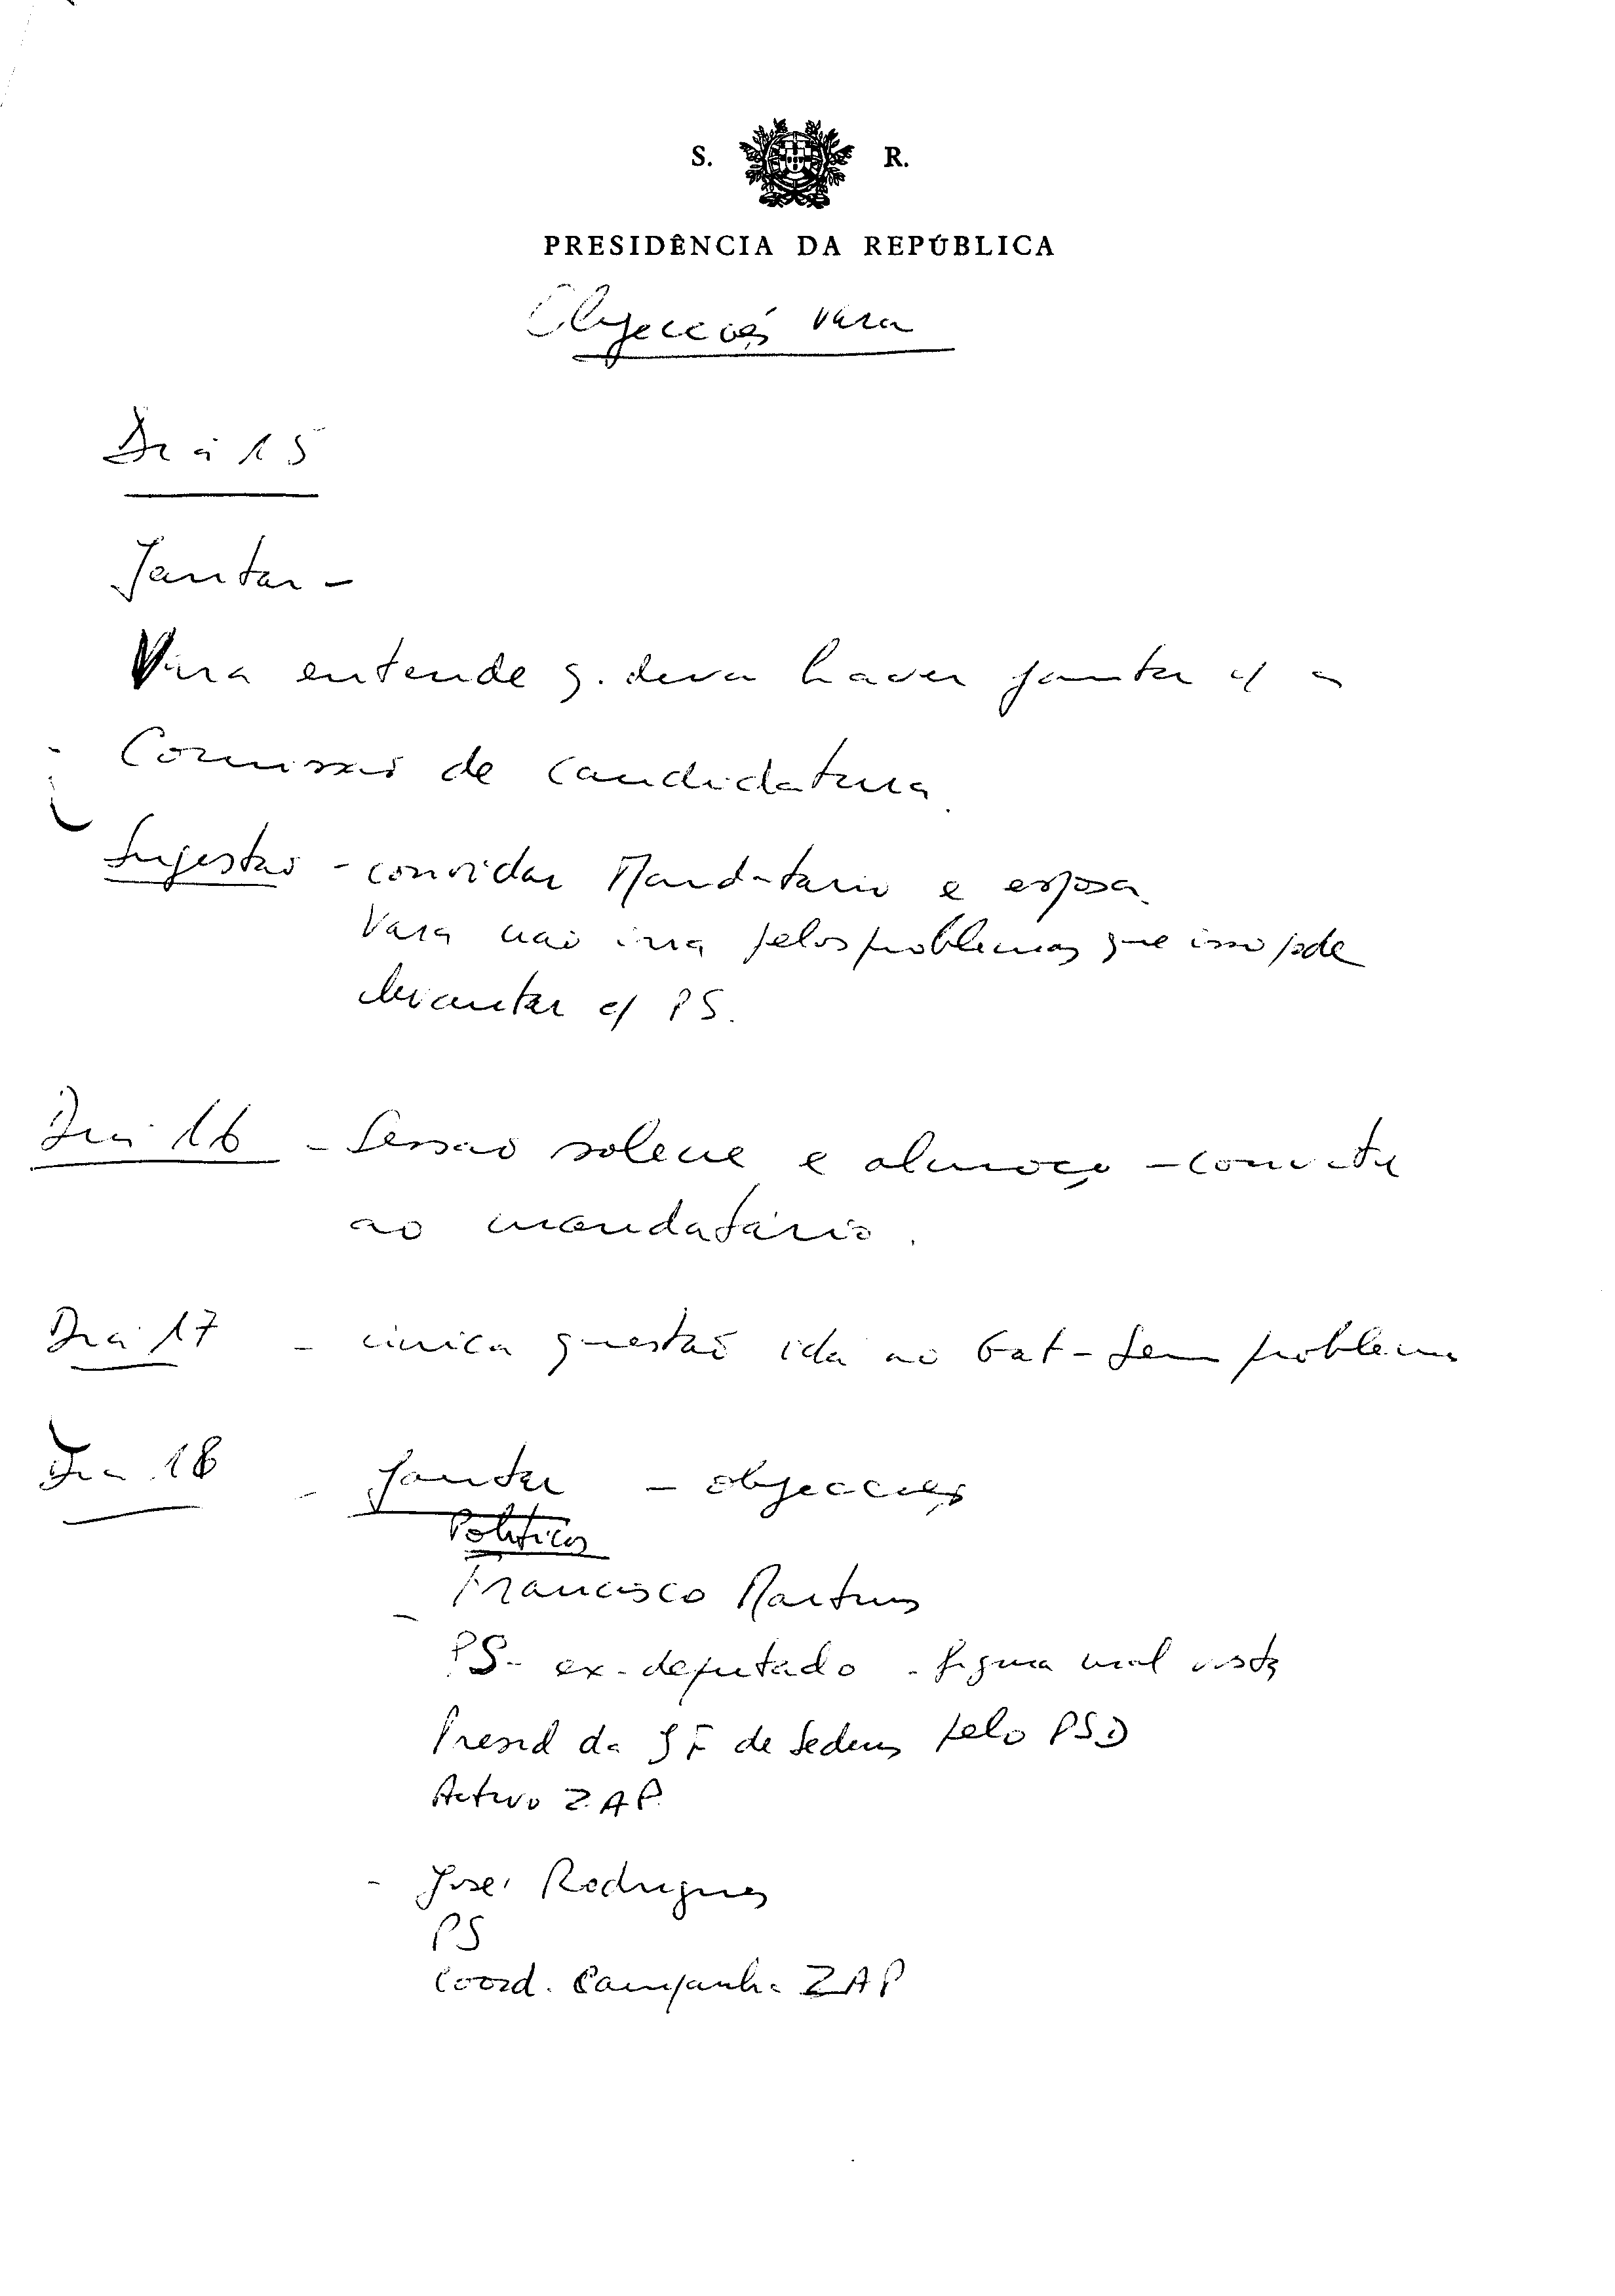 S. R.
PRESIDÊNCIA DA REPÚBLICA
Objecções Vara
Dia 15
Jantar -
Vara entende q. deva haver jantar c/ a
Comissão de Candidatura.
Sugestão - convidar Mandatário e esposa.
Vara não irá pelos problemas que isso pode
levantar c/ PS.
Dia 16 - Sessão solene e almoço - convite
ao mandatário.
Dia 17 - única questão ida ao Gat - Sem problema
Dia 18 - Jantar - objecções
Políticos
- Francisco Martins
PS - ex-deputado - figura mal vista
Presid da JF de Sedens pelo PSD
Activo ZAP
- José Rodrigues
PS
Coord. Campanha ZAP